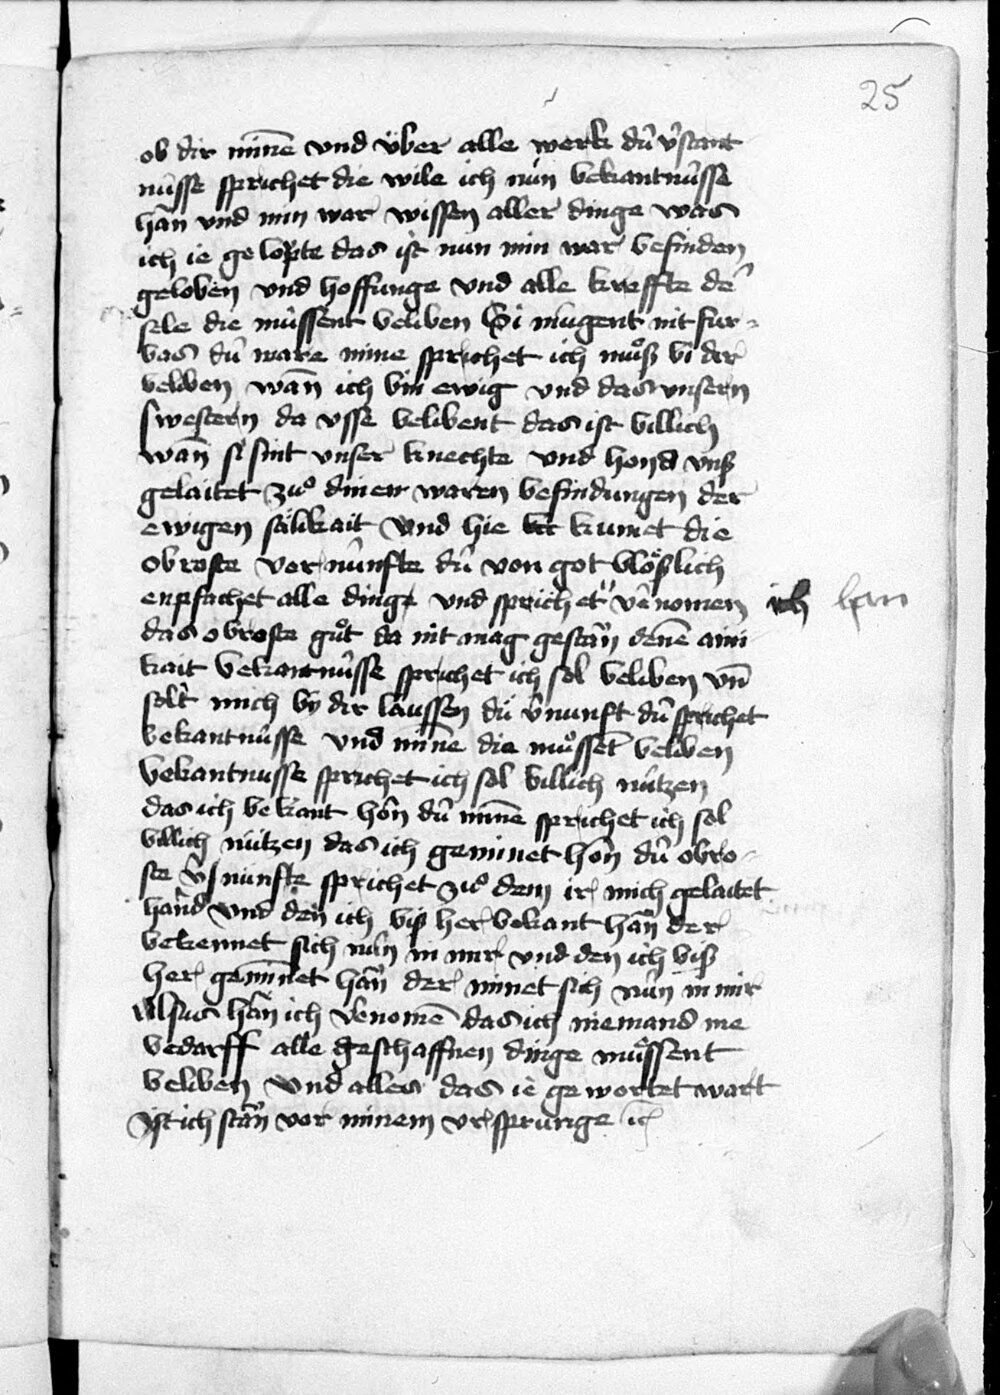 25
ob dir minē vnd v̈ber alle werk dû v̂stant
nûsse sprichet die wile ich nún bekantnûsse
hān vnd min war wissen aller dinge was
ich ie gelopte das ist nun min war befinden
geloben vnd hoffunge vnd alle kreffte der
sele die mûssent beliben Si mugent nit fur-
bas dû ware mine sprichet ich mů̊ß bi dir
beliben wan̄ ich bin ewig vnd das vnsern
swestern da vsse belibent das ist billich
wan̄ si sint vnser knechte vnd hond vnß
gelaitet zů diner waren befindungen der
ewigen sälikait vnd hie kumet die
obroste vernûnfte dû von got blößlich
enpfachet alle dinge vnd sprichet v̂nomen ich han
das obroste gůt da nit mag gestan̄ denē aini
kait bekantnûsse sprichet ich sol beliben vn̄
solt mich by dir laussen dû v̂nunft dû sprichet
bekantnûsse vnd mine die můssēt beliben
bekantnusse sprichet ich sol billich nûtzen
das ich bekant hôn dû minē sprichet ich sol
billich nützen das ich geminet hôn dû obro-
ste v̂nünfte sprichet zů dem ir mich gelaitet
hând vnd den ich biß her bekant hân der
bekennet sich nûn in mir vnd den ich biß
her geminnet hân der minet sich nûn in mir
Alsus hân ich v̂nomē das ich niemand me
bedarff alle geschaffnen dinge můssent
beliben vnd alles das ie gewortet wart
Ist ich stân vor minem vrsprunge ic